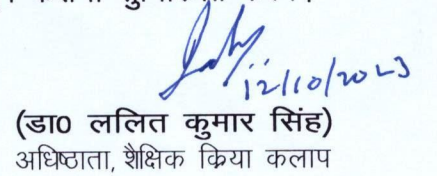 12/10/2023
(डा0 ललित कुमार सिंह)
अधिष्ठाता, शैक्षिक क्रिया कलाप